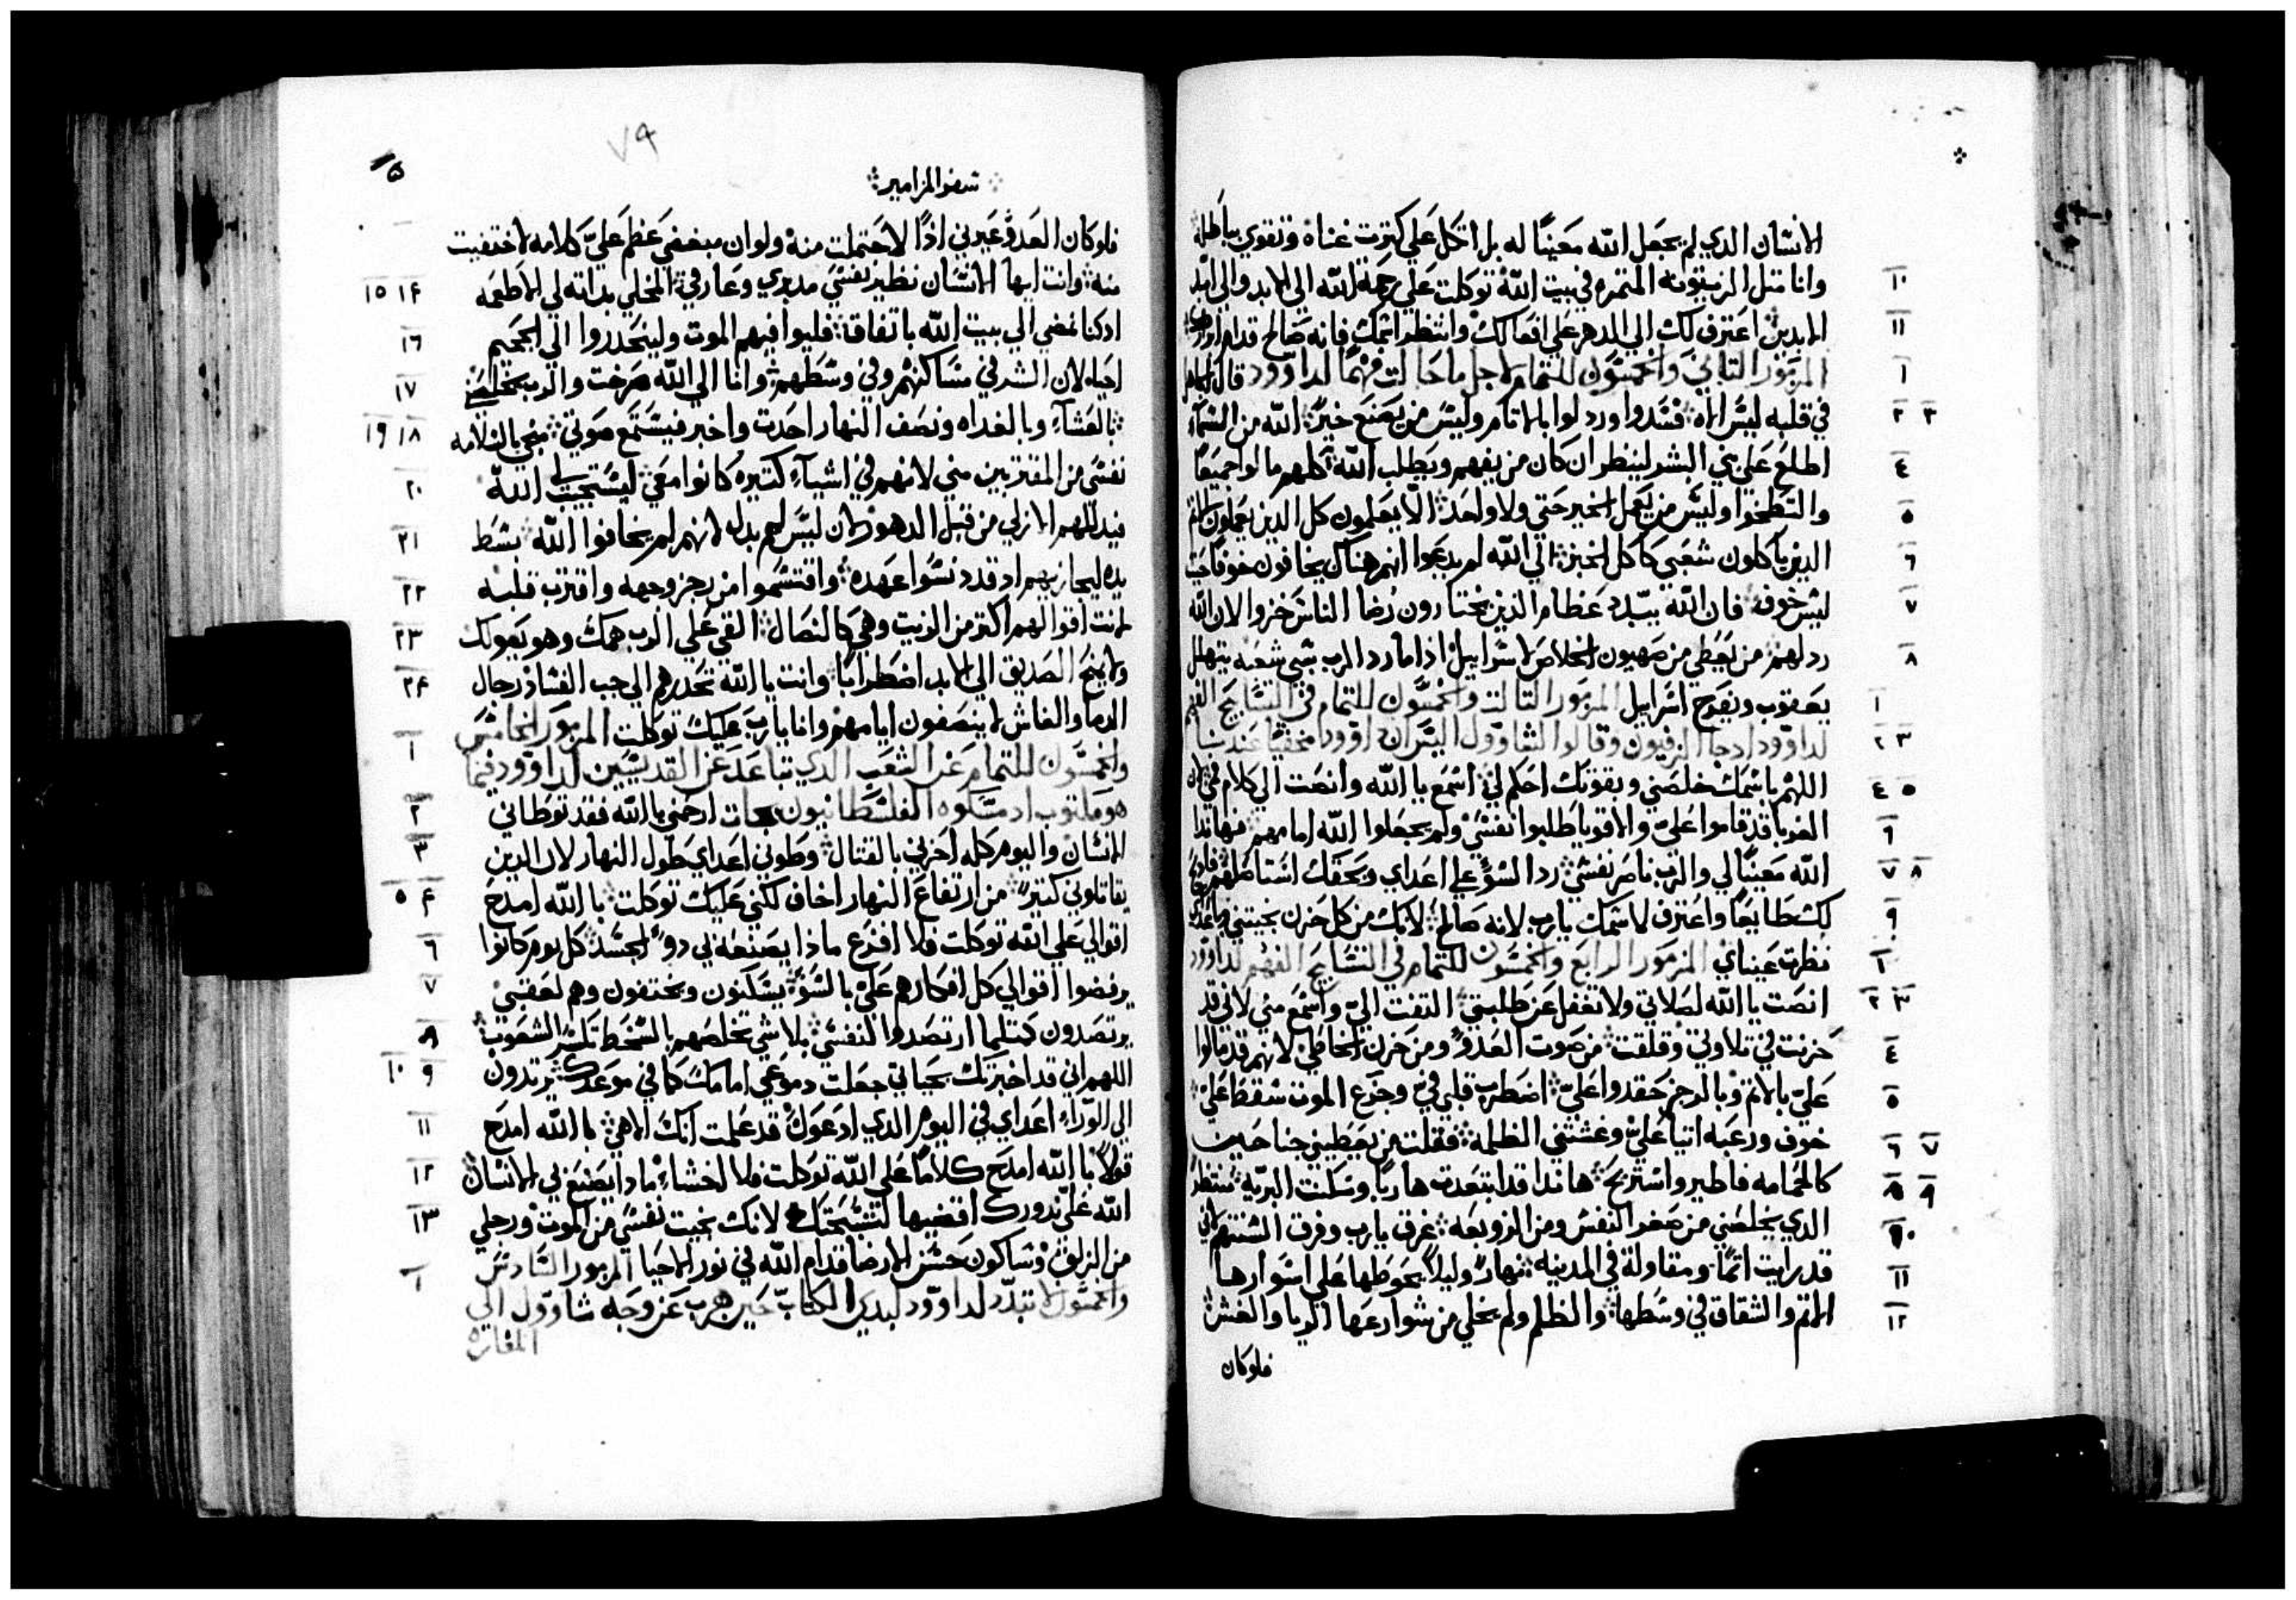 الانسان الدي لم يجعل الله معينًا له بل اتكل علي كترت غناه وتقوي بباطله
١٠ وانا متل الزيتونه المتمره في بيت الله توكلت علي رحمة الله الي الابد والي ابد
١١ الابدين اعترف لك الي الدهر علي افعالك وانتظر اسمك فانه صالح قدام ابرارك
١ المزمور التاني والخمسون للتمام لاجل ماحالت فهمًا لداوود قال الجاهل
٢ ٣ في قلبه ليس اله فسدوا ورذلوا بالاتام وليس من يصنع خيرًا الله من السماء
٤ اطلع علي بني البشر لينظر ان كان من يفهم ويطلب الله كلهم مالوا جميعًا
٥ والتطخوا وليس من يعمل الخير حتي ولا واحد الا يعلمون كل الدين يعملون الاتم
٦ الدين ياكلون شعبي كاكل الخبز الي الله لم يدعوا انهم هناك يخافون خوفًا حيت
٧ ليس خوف فان الله يبدد عظام الذين يختارون رضا الناس خزوا لان الله
٨ ردلهم من يعطي من صهيون الخلاص لاسراييل اذا ما رد الرب سبي شعبه يتهلل
١ يعقوب ويفرح اسراييل المزمور التالت والخمسون للتمام في التسابيح الفهم
٢ ٣ لداوود ادجا الزفيون وقالوا لشاوول اليس ان داوود مختفيًا عندنا
٤ ٥ اللهم باسمك خلصني وبقوتك احكم لي اسمع يا الله وانصت الي كلام في لان
٦ الغربا قد قاموا علي والاقويا طلبوا نفسي ولم يجعلوا الله امامهم فهاندا
٧ ٨ الله معينًا لي والرب ناصر نفسي رد السؤ علي اعداي وبحقك استاصلهم فادبح
٩ لك طايعًا واعترف لاسمك يا رب لانه صالح لانك من كل حزن نجيتني وباعداي
١ نظرت عيناي المزمور الرابع والخمسون للتمام في التسابيح الفهم لداوود
٢ ٣ انصت يا الله لصلاتي ولا تغفل عن طلبتي التفت الي واسمع مني لاني قد
٤ حزنت في تلاوتي وقلقت من صوت العدو ومن حزن الخاطي لانهم قد مالوا
٥ علي بالاتم وبالرجز حقدوا علي اضطرب قلبي في وجزع الموت سقط علي
٦ ٧ خوف ورعبه اتيا علي وغشتني الظلمة فقلت من يعطيني جناحين
٨ ٩ كالحمامه فاطير واستريح هاندا قد ابتعدت هاربًا وسكنت البرية منتظرًا
١٠ الدي يخلصني من صغر النفس ومن الزوبعه غرق يا رب وفرق السنتهم لاني
١١ قد رايت اتمًا ومقاولة في المدينه نهارًا وليلاً يحوطها علي اسوارها
١٢ الاتم والشقاق في وسطها والظلم ولم يخلي من شوارعها الربا والغش
فلو كان
٧٩
سفر المزامير
فلو كان العدو عيرني اذًا لاحتملت منه ولو ان مبغضي عظم علي كلامه لاختفيت
١٤ ١٥ منه وانت ايها الانسان نظير نفسي مدبري وعارفي المحلي بداته لي الاطعمه
١٦ ادكنا نمضي الي بيت الله باتفاق فليوافيهم الموت ولينحدروا الي الجحيم
١٧ احياء لان الشر في مساكنهم وفي وسطهم وانا الي الله صرخت والرب يخلصني
١٨ ١٩ بالعشاء وبالغداه ونصف النهار احدت واخبر فيستمع صوتي منجي بالسلامه
٢٠ نفسي من المقتربين مني لانهم في اشياء كتيره كانوا معي ليستجيب الله
٢١ فيدللهم الازلي من قبل الدهور لان ليس لهم بدل لانهم لم يخافوا الله بسط
٢٢ يده ليجازيهم اد قد دنسوا عهده واقتسموا من رجز وجهه واقترب قلبه
٢٣ لانت اقوالهم اكتر من الزيت وهي كالنصال القي علي الرب همك وهو يعولك
٢٤ ولا يمنح الصديق الي الابد اضطرابًا وانت يا الله تحدرهم الي جب الفساد رجال
الدما والغاش لا ينصفون ايامهم وانا يا رب عليك توكلت المزمور الخامس
١ والخمسون للتمام عن الشعب الدي تباعد عن القديسين لداوود فيما
٢ هو مكتوب ادمسكوه الفلسطانيون بجات ارحمني يا الله فقد توطاني
٣ الانسان واليوم كله احزني بالقتال وطوني اعداي طول النهار لان الدين
٤ ٥ يقاتلوني كتيرٌ من ارتفاع النهار اخاف لكني عليك توكلت با الله امدح
٦ اقوالي علي الله توكلت فلا افزع ماذا يصنعه بي دوو الجسد كل يوم كانوا
٧ يرفضوا اقوالي كل افكارهم علي بالسؤ يسكنون ويختفون وهم لعقبي
٨ يرتصدون كمتلما ارتصدوا لنفسي بلاشي تخلصهم بالسخط تكسر الشعوب
٩ ١٠ اللهم اني قد اخبرتك بحياتي جعلت دموعي امامك كما في موعدك يرتدون
١١ الي الوراء اعداي في اليوم الدي ادعوك قد علمت انك الاهي با الله امدح
١٢ قولاً با الله امدح كلامًا علي الله توكلت فلا اخشاء ما دا يصنع بي الانسان
١٣ الله علي ندورك اقضيها لتسبحتك لانك نجيت نفسي من الموت ورجلي
من الزلق وساكون حسن الارضا قدام الله في نور الاحيا المزمور السادس
١ والخمسون لا تبدد لداوود لبدي الكتاب حين هرب عن وجه شاوول الي
المغاره